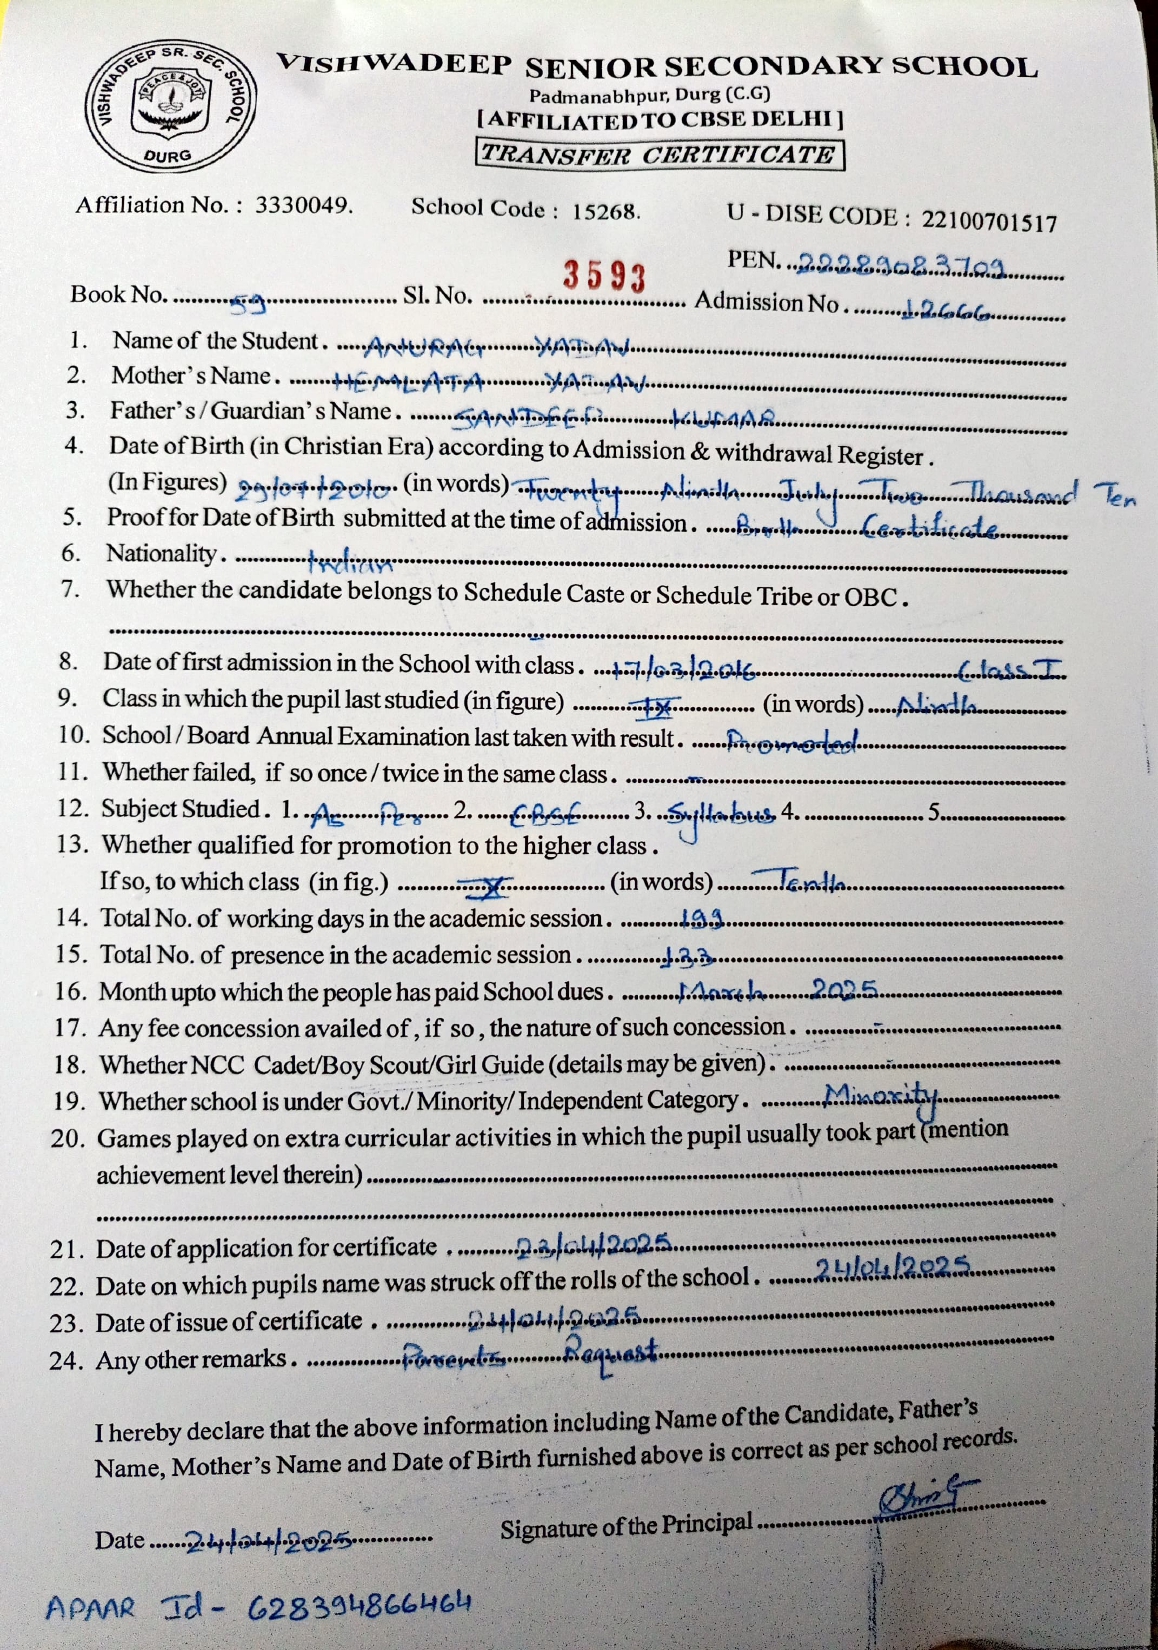 VISHWADEEP SR. SEC. SCHOOL
PEACE & JOY
DURG
VISHWADEEP SENIOR SECONDARY SCHOOL
Padmanabhpur, Durg (C.G)
[AFFILIATED TO CBSE DELHI]
TRANSFER CERTIFICATE
Affiliation No. : 3330049. School Code : 15268. U - DISE CODE : 22100701517
PEN. 22289083709
Book No. 59 Sl. No. 3593 Admission No. 12666
1. Name of the Student. ANURAG YADAV
2. Mother's Name. HEMLATA YADAV
3. Father's/Guardian's Name. SANDEEP KUMAR
4. Date of Birth (in Christian Era) according to Admission & withdrawal Register.
(In Figures) 29/07/2010 (in words) Twenty Nineth July Two Thousand Ten
5. Proof for Date of Birth submitted at the time of admission. Birth Certificate
6. Nationality. Indian
7. Whether the candidate belongs to Schedule Caste or Schedule Tribe or OBC.
-
8. Date of first admission in the School with class. 17/03/2016 Class I
9. Class in which the pupil last studied (in figure) IX (in words) Nineth
10. School/Board Annual Examination last taken with result. Promoted
11. Whether failed, if so once/twice in the same class. -
12. Subject Studied. 1. As Per 2. CBSE 3. Syllabus 4. 5.
13. Whether qualified for promotion to the higher class.
If so, to which class (in fig.) X (in words) Tenth
14. Total No. of working days in the academic session. 199
15. Total No. of presence in the academic session. 133
16. Month upto which the people has paid School dues. March 2025
17. Any fee concession availed of, if so, the nature of such concession. -
18. Whether NCC Cadet/Boy Scout/Girl Guide (details may be given). -
19. Whether school is under Govt./Minority/Independent Category. Minority
20. Games played on extra curricular activities in which the pupil usually took part (mention
achievement level therein)
21. Date of application for certificate. 23/04/2025
22. Date on which pupils name was struck off the rolls of the school. 24/04/2025
23. Date of issue of certificate. 24/04/2025
24. Any other remarks. Parents Request
I hereby declare that the above information including Name of the Candidate, Father's
Name, Mother's Name and Date of Birth furnished above is correct as per school records.
Date 24/04/2025 Signature of the Principal
APAAR Id - 628394866464